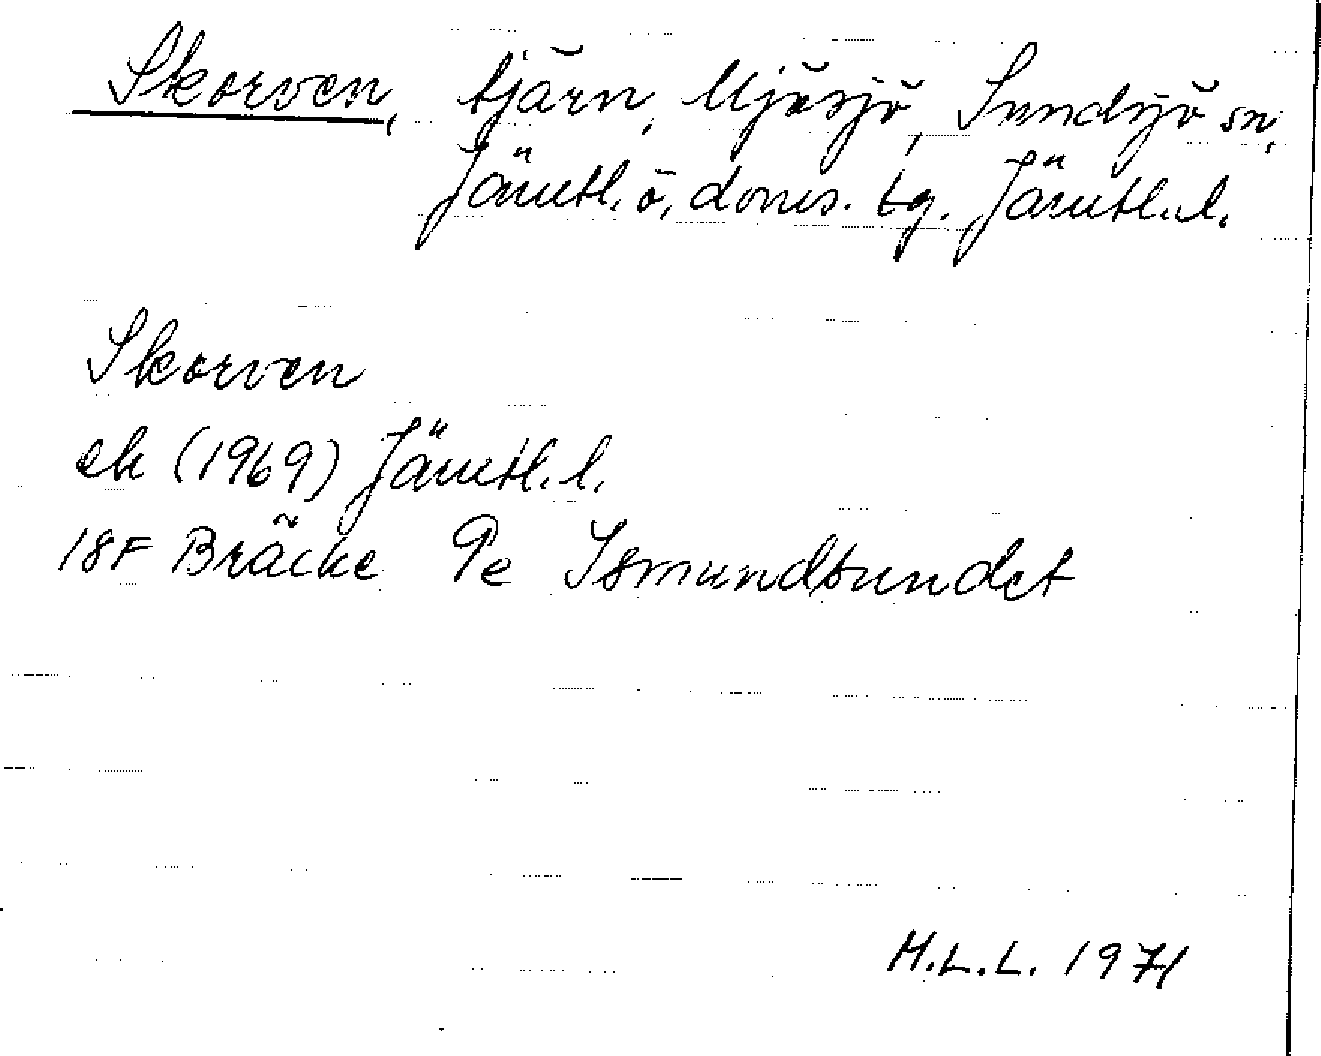 Skorven, tjärn, Mjösjö, Sundsjö sn,
Jämtl. ö. doms. tg. Jämtl. l.
Skorven
ek (1969) Jämtl. l.
18F Bräcke 9e Ismundsundet
H.L.L. 1971